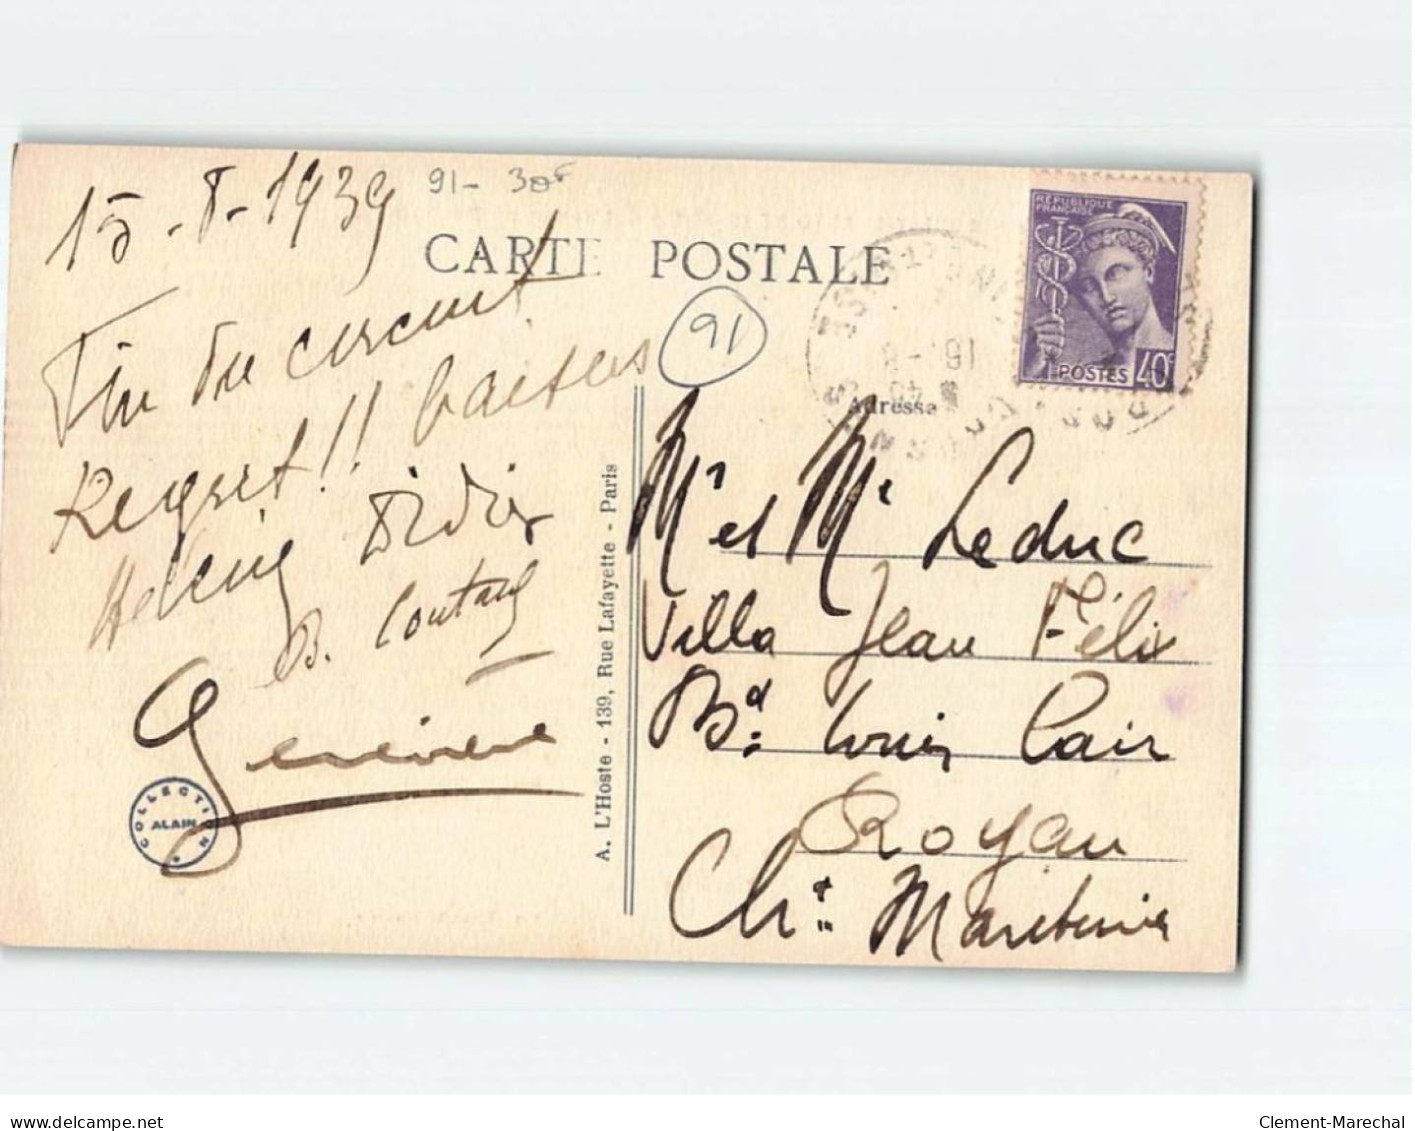 15-8-1939
91- 30F
CARTE POSTALE
RÉPUBLIQUE
FRANÇAISE
POSTES 40c
91
Adresse
Fin du circuit
Regret!! baisers
Hélène Didier
B. Coutard
Geneviève
COLLECTION
ALAIN
A. L'Hoste - 139, Rue Lafayette - Paris
Mr et Me Leduc
Villa Jean Félix
Bd. Louis Cair
Royan
Chte Maritime
delcampe.net
Clement-Marechal